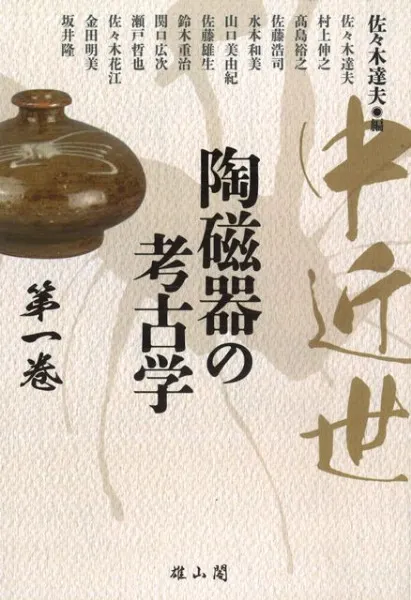 佐々木達夫◉編
佐々木達夫
村上伸之
髙島裕之
佐藤浩司
水本和美
山口美由紀
佐藤雄生
鈴木重治
関口広次
瀬戸哲也
佐々木花江
金田明美
坂井隆
中近世
陶磁器の
考古学
第一巻
雄山閣